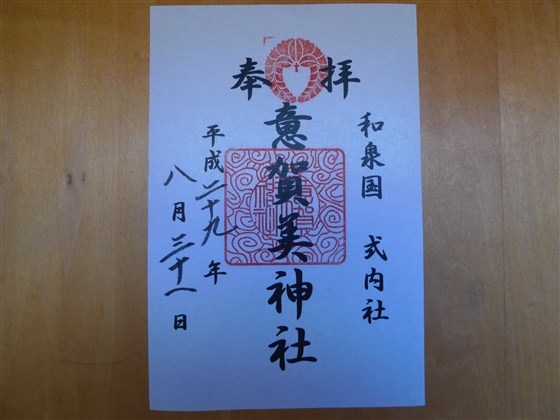 奉拝
和泉国 式内社
意賀美神社
平成二十九年
八月三十一日